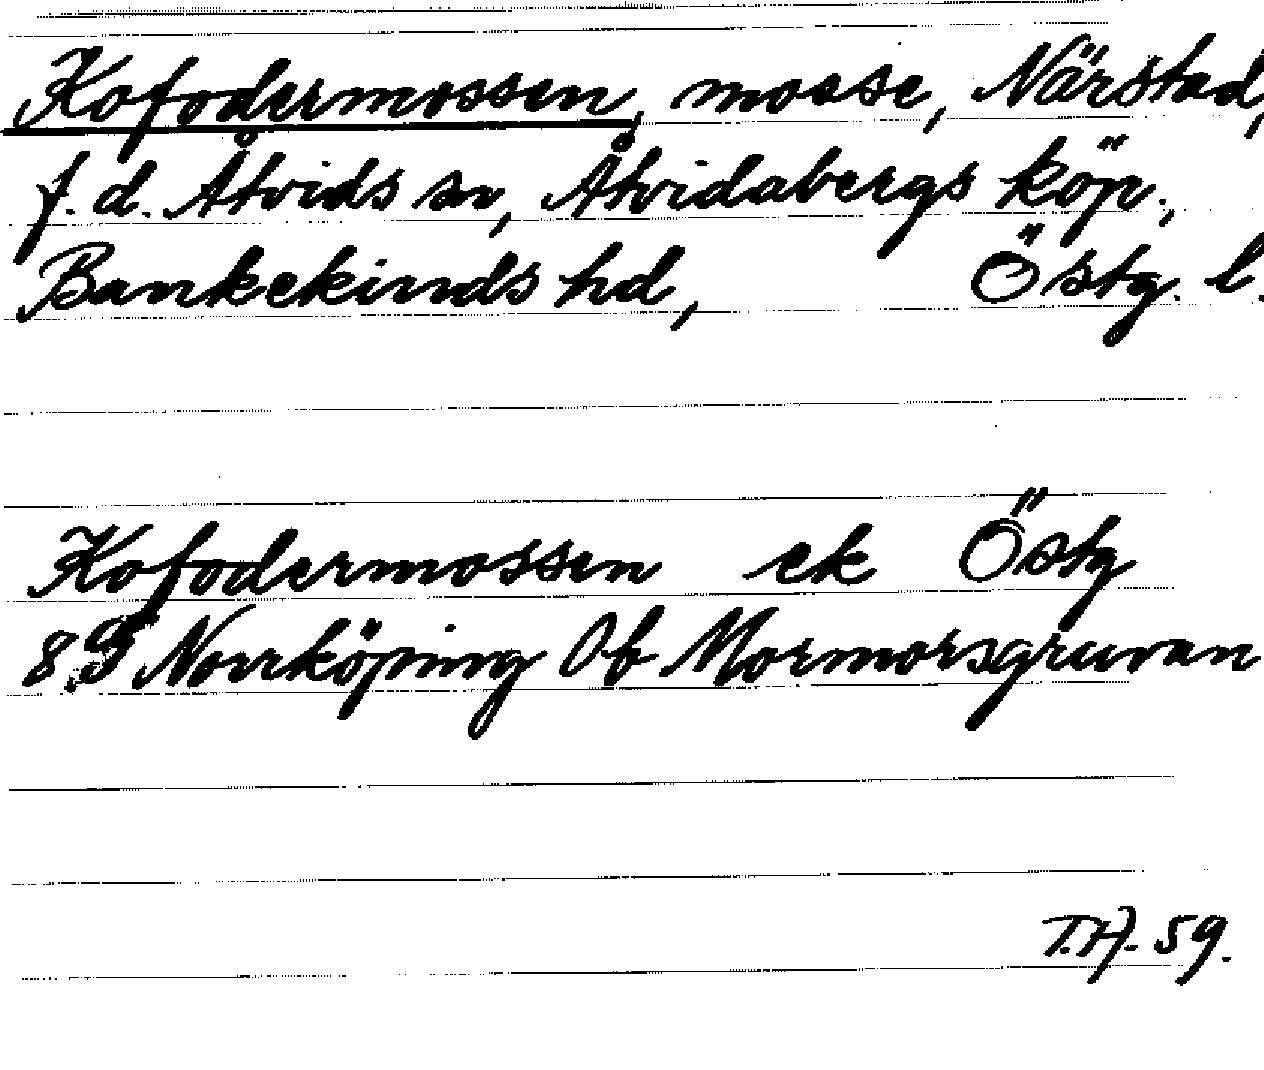 Kofodermossen, mosse, Närstad,
f.d. Åtvids sn, Åtvidabergs köp.,
Bankekinds hd, Östg. l.
Kofodermossen ek Östg
8 Norrköping Ob Mormorsgruvan
T.H. 59.